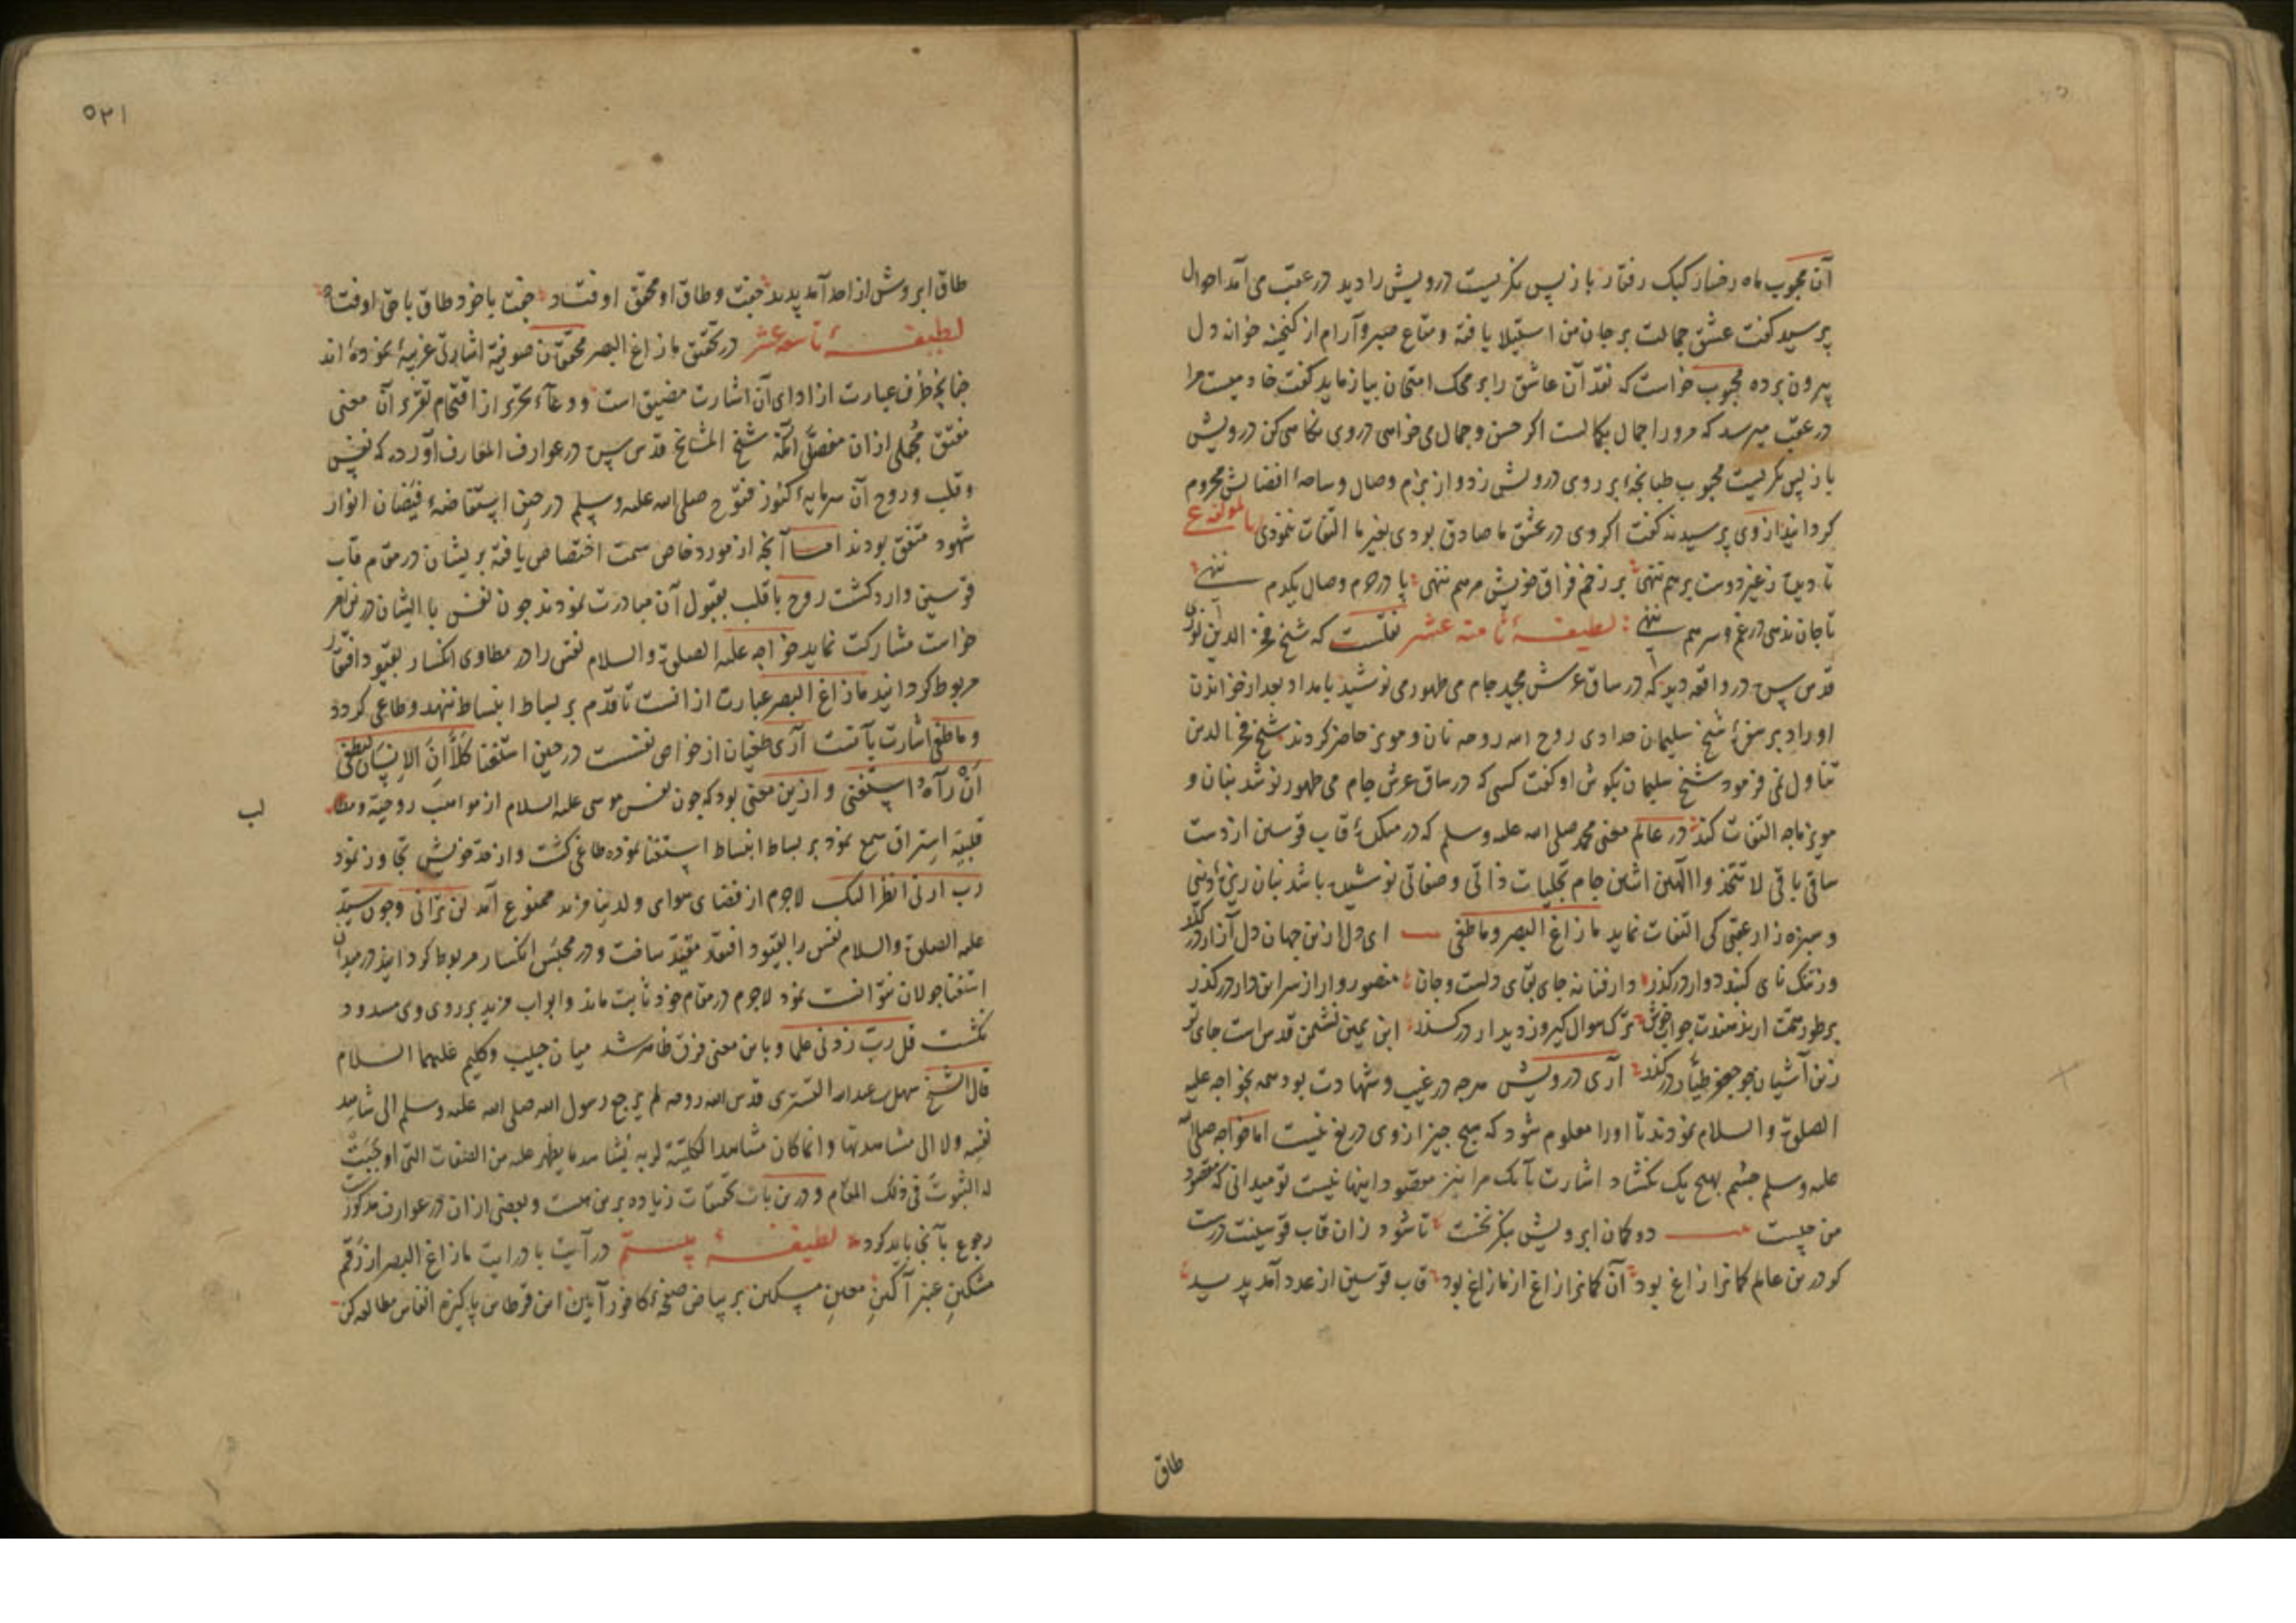 آن محبوب ماه رخسار کبک رفتار باز پس نگریست درویش را دید در عقب می آمد احوال
پرسید گفت عشق جمالت بر جان من استیلا یافته و متاع صبر و آرام از گنجینه خوانه دل
بیرون برده محبوب خواست که نقد آن عاشق را بر محک امتحان بیازماید گفت خادمیست مرا
در عقب میرسد که مرورا جمال بکمالست اگر حسن و جمال می خواهی در وی نگاهی کن درویش
باز پس نگریست محبوب طبانچهٔ بر روی درویش زد و از بزم وصال و ساحهٔ افضالش محروم
گردانید از وی پرسیدند گفت اگر وی در عشق ما صادق بودی بغیر ما التفات ننمودی لمؤلفه ع
تا دیده ز غیر دوست بر هم ننهی بر زخم فراق خویش مرهم ننهی پا در حرم وصال یکدم ننهی
تا جان ندهی در غم و سر هم ننهی لطیفهٔ ثامنه عشر نقلست که شیخ فخر الدین
قدس سره در واقعه دید که در ساق عرش مجید جام می طهور می نوشید بامداد بعد از خواندن
اوراد بر سفرهٔ شیخ سلیمان حدادی روح الله روحه نان و مویز حاضر کردند شیخ فخر الدین
تناول نمی فرمود شیخ سلیمان بگوش او گفت کسی که در ساق عرش جام می طهور نوشد بنان و
مویز ما چه التفات کند در عالم معنی محمد صلی الله علیه وسلم که در قاب قوسین از دست
ساقی باقی لا تتخذوا الهین اثنین جام تجلیات ذاتی و صفاتی نوشیده باشد بنان ریزهٔ دنیی
و سبزه زار عقبی کی التفات نماید ما زاغ البصر وما طغی ای دل ازین جهان دل آزار در گذر
وز تنک نای گنبد دوار در گذر دار فنا نه جای بقای دلست و جان منصور وار از سر این دار در گذر
ترک سوال گیر و ز دیدار در گذر ابن یمین نشیمن قدس است جای تو
زین آشیان چو جعفر طیار در گذر آری درویش هرچه در غیب و شهادت بود همه بخواجه علیه
الصلوة والسلام نمودند تا اورا معلوم شود که هیچ چیز از وی دریغ نیست اما خواجه صلی الله
علیه وسلم چشم بهیچ یک نگشاد اشارت بآنک مرا نیز مقصود اینها نیست تو میدانی که مقصود
من چیست دو کمان ابرویش بنگر نخست تا شود زان قاب قوسینت درست
کو درین عالم کمانرا زاغ بود آن کمانرا زاغ از ما زاغ بود قاب قوسین از عدد آمد پدید
طاق
۵۲۱
طاق ابروش از احد آمد پدید جفت و طاق او محقق اوفتاد جفت با خود طاق با حق اوفتاد
لطیفهٔ تاسعه عشر در تحقیق ما زاغ البصر محققان صوفیه اشارتی غریبه نموده اند
چنانچه ظرف عبارت از ادای آن اشارت مضیق است و وعاء تحریر از اقتحام تقریر آن معنی
مجملی ازان مفصل آنکه شیخ المشایخ قدس سره در عوارف المعارف آورده که نفس
و قلب و روح آن سرمایهٔ کنوز فتوح صلی الله علیه وسلم در حین استفاضهٔ فیضان انوار
شهود متفق بودند اما آنچه از مورد خاص سمت اختصاص یافته بر یشان در مقام قاب
قوسین وارد گشت روح با قلب بقبول آن مبادرت نمودند چون نفس با ایشان
خواست مشارکت نماید خواجه علیه الصلوة والسلام نفس را در مطاوی انکسار بقیود افتقار
مربوط گردانید ما زاغ البصر عبارت از انست تا قدم بر بساط انبساط ننهد و طاغی نگردد
و ما طغی اشارت بآنست آری طغیان از خواص نفسست در حین استغنا کلا ان الانسان لیطغی
ان رآه استغنی و ازین معنی بود که چون نفس موسی علیه السلام از مواهب روحیة و مطالب
قلبیه استراق سمع نمود بر بساط انبساط استغنا نموده طاغی گشت و از حد خویش تجاوز نمود
رب ارنی انظر الیک لاجرم از فضای هوای ولدینا مزید ممنوع آمد لن ترانی و چون سید
علیه الصلوة والسلام نفس را بقیود افتقار مقید ساخت و در محبس انکسار مربوط گردانید در میدان
استغنا جولان نتوانست نمود لاجرم در مقام خود ثابت ماند و ابواب مزید بر روی وی مسدود
نگشت قل رب زدنی علما و باین معنی فرق ظاهر شد میان حبیب و کلیم علیهما السلام
قال الشیخ سهل بن عبدالله التستری قدس الله روحه لم یرجع رسول الله صلی الله علیه وسلم الی شاهد
نفسه ولا الی مشاهدتها وانما کان مشاهدا لکلیته لربه یشاهد ما یظهر علیه من الصفات التی اوجبت
له الثبوت فی ذلک المقام و درین باب تحقیقات زیاده برین هست و بعضی ازان در عوارف مذکورست
رجوع بآنجا باید کرد لطیفهٔ بیستم در آیت با درایت ما زاغ البصر از رقم
مشکین عنبر آگین معین مسکین بر بیاض صفحهٔ کافور آیین این قرطاس پاکیزه انفاس مطالعه کن